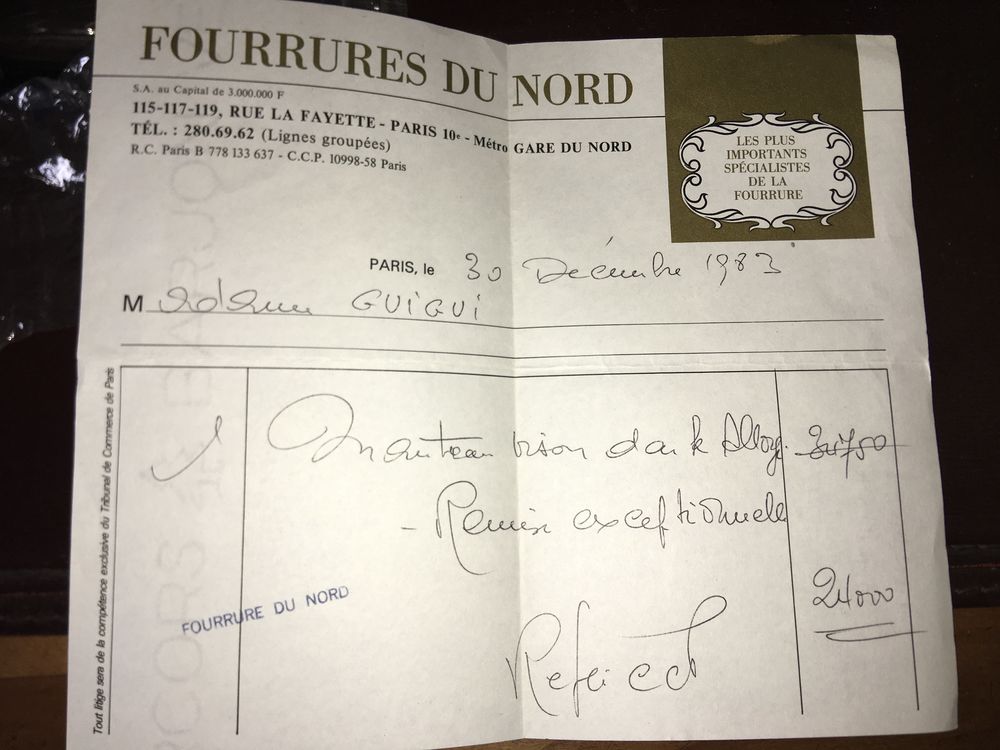 FOURRURES DU NORD
S.A. au Capital de 3.000.000 F
115-117-119, RUE LA FAYETTE - PARIS 10e - Métro GARE DU NORD
TÉL. : 280.69.62 (Lignes groupées)
R.C. Paris B 778 133 637 - C.C.P. 10998-58 Paris
LES PLUS
IMPORTANTS
SPÉCIALISTES
DE LA
FOURRURE
PARIS, le 30 Décembre 1983
Madame GUIGUI
Tout litige sera de la compétence exclusive du Tribunal de Commerce de Paris
1 Manteau vison dark
- Remise exceptionnelle
24000
FOURRURE DU NORD